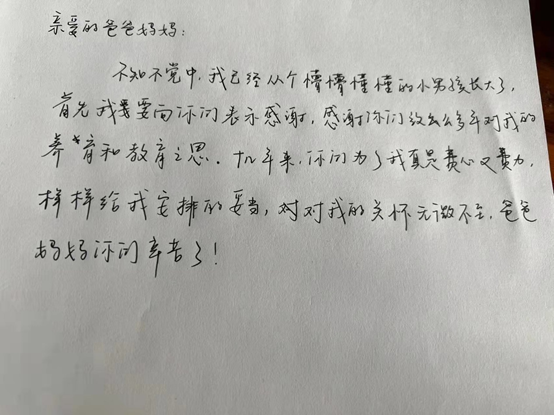 亲爱的爸爸妈妈:
不知不觉中,我已经从个懵懵懂懂的小男孩长大了,
首先我要向你们表示感谢,感谢你们这么多年对我的
养育和教育之恩。十几年来,你们为了我真是费心又费力,
样样给我安排的妥当,对对我的关怀无微不至,爸爸
妈妈你们辛苦了!